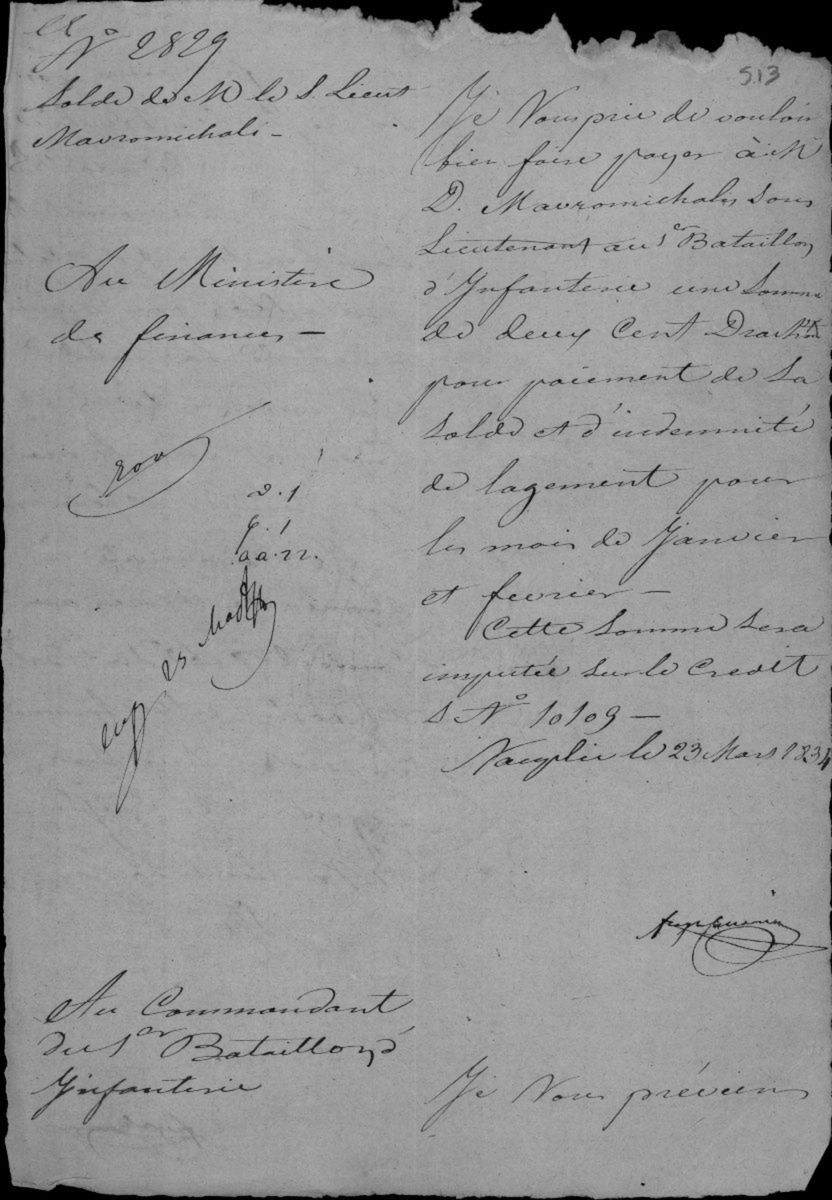 Nº 2829
Solde de M le S. Lieut
Mavromichali -
Au Ministère
de finances -
200
513
Je Vous prie de vouloir
bien faire payer à M
D. Mavromichalis Sous
Lieutenant au 1er Bataillon
d'Infanterie une Somme
de deux Cent Drachmes
pour paiement de Sa
Solde et d'indemnité
de logement pour
les mois de Janvier
et fevrier -
Cette Somme Sera
imputée sur le Credit
s Nº 10109 -
Nauplie le 23 Mars 1834
Au Commandant
du 1er Bataillon d'
Infanterie
Je Vous préviens